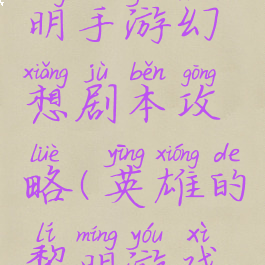 明手游幻
xiǎng jù běn gōng
想剧本攻
lüè yīng xióng de
略(英雄的
lí míng yóu xì
黎明游戏